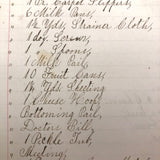 1 Pr. Carpet Slippers
6 Milk Pans,
1½ Yds. Strainer Cloth,
1 doz Screws
7 " Spoons
1 Milk Pail,
10 Fruit Cans
Yds Sheeting
1 Cheese Hoop
Bottoming Pail,
Doctors Bill,
1 Pickle Jar,